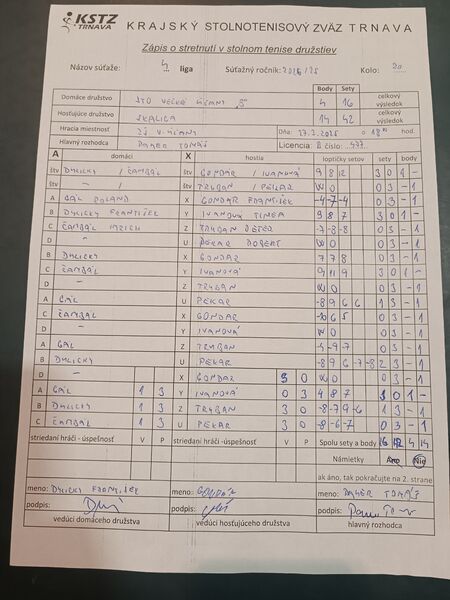 KSTZ
TRNAVA
KRAJSKÝ STOLNOTENISOVÝ ZVÄZ TRNAVA
Zápis o stretnutí v stolnom tenise družstiev
Názov súťaže: 4 liga Súťažný ročník: 2024/25 Kolo: 20
Body Sety
Domáce družstvo STO VEĽKÉ ÚĽANY "B" 4 16 celkový výsledok
Hosťujúce družstvo SKALICA 14 42 celkový výsledok
Hracia miestnosť ZŠ V. ÚĽANY Dňa: o 18 hod.
Hlavný rozhodca TOMÁŠ Licencia: B číslo:
A domáci X hostia loptičky setov sety body
štv DYLICKY / ČAMBÁL štv GONDÁR / IVANOVÁ 9 8 12 3 0 1 -
štv - / - štv TRUBAN / PEKAR WO 0 3 - 1
A GÁL ROLAND X GONDÁR FRANTIŠEK -4 -7 -4 0 3 - 1
B DYLICKY FRANTIŠEK Y IVANOVÁ TIMEA 9 8 7 3 0 1 -
C ČAMBÁL IMRICH Z TRUBAN PETER -7 -8 -8 0 3 - 1
D - U PEKAR ROBERT WO 0 3 - 1
B DYLICKY X GONDÁR 7 7 8 0 3 - 1
C ČAMBÁL Y IVANOVÁ 9 11 9 3 0 1 -
D - Z TRUBAN WO 0 3 - 1
A GÁL U PEKAR -8 9 6 6 1 3 - 1
C ČAMBÁL X GONDÁR -10 6 5 0 3 - 1
D - Y IVANOVÁ WO 0 3 - 1
A GÁL Z TRUBAN -9 -7 0 3 - 1
B DYLICKY U PEKAR -8 9 6 -7 -8 2 3 - 1
D - X GONDÁR 3 0 WO 0 3 - 1
A GÁL 1 3 Y IVANOVÁ 0 3 4 8 7 3 0 1 -
B DYLICKY 1 3 Z TRUBAN 3 0 -8 -7 9 -6 1 3 - 1
C ČAMBÁL 1 3 U PEKAR 3 0 -8 -6 -7 0 3 - 1
striedaní hráči - úspešnosť V P striedaní hráči - úspešnosť V P Spolu sety a body 16 42 4 14
Námietky Áno Nie
ak áno, tak pokračujte na 2. strane
meno: DYLICKY FRANTIŠEK meno: GONDÁR meno: TOMÁŠ
podpis: podpis: podpis:
vedúci domáceho družstva vedúci hosťujúceho družstva hlavný rozhodca